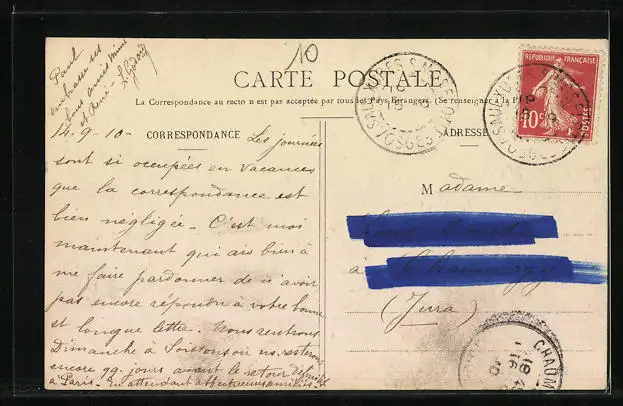 Paul
embrasse ses
bons amis Mimi
et René.
10
CARTE POSTALE
La Correspondance au recto n'est pas acceptée par tous les Pays Étrangers. (Se renseigner à la P
RÉPUBLIQUE FRANÇAISE
10c
POSTES
14-9-10-
CORRESPONDANCE
ADRESSE
VOSGES
VOSGES
Les journées
sont si occupées en vacances
que la correspondance est
bien négligée. C'est moi
maintenant qui ais bien à
me faire pardonner de n'avoir
pas encore répondu à votre bonne
et longue lettre. Nous rentrons
Dimanche à Soissons où ns. resterons
encore qq. jours avant le retour définitif
à Paris. En attendant
Madame
à
(Jura)
CHAUM